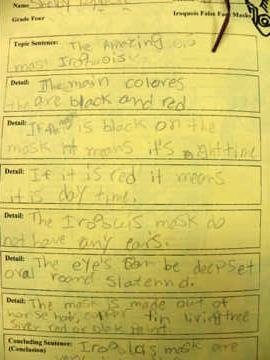 Name
Grade Four Iroquois False Face Masks
Topic Sentence: The Amazing
mask Iroquois
Detail: The main colores
the are black and red
Detail: If is black on the
mask it means it's
Detail: If it is red it means
it is day time.
Detail: The Iroquois mask do
not have any ears.
Detail: The eye's can be deepset
oval round
Detail: The mask is made out of
horse hair, tin living tree
red or paint.
Concluding Sentence: mask are
(Conclusion)